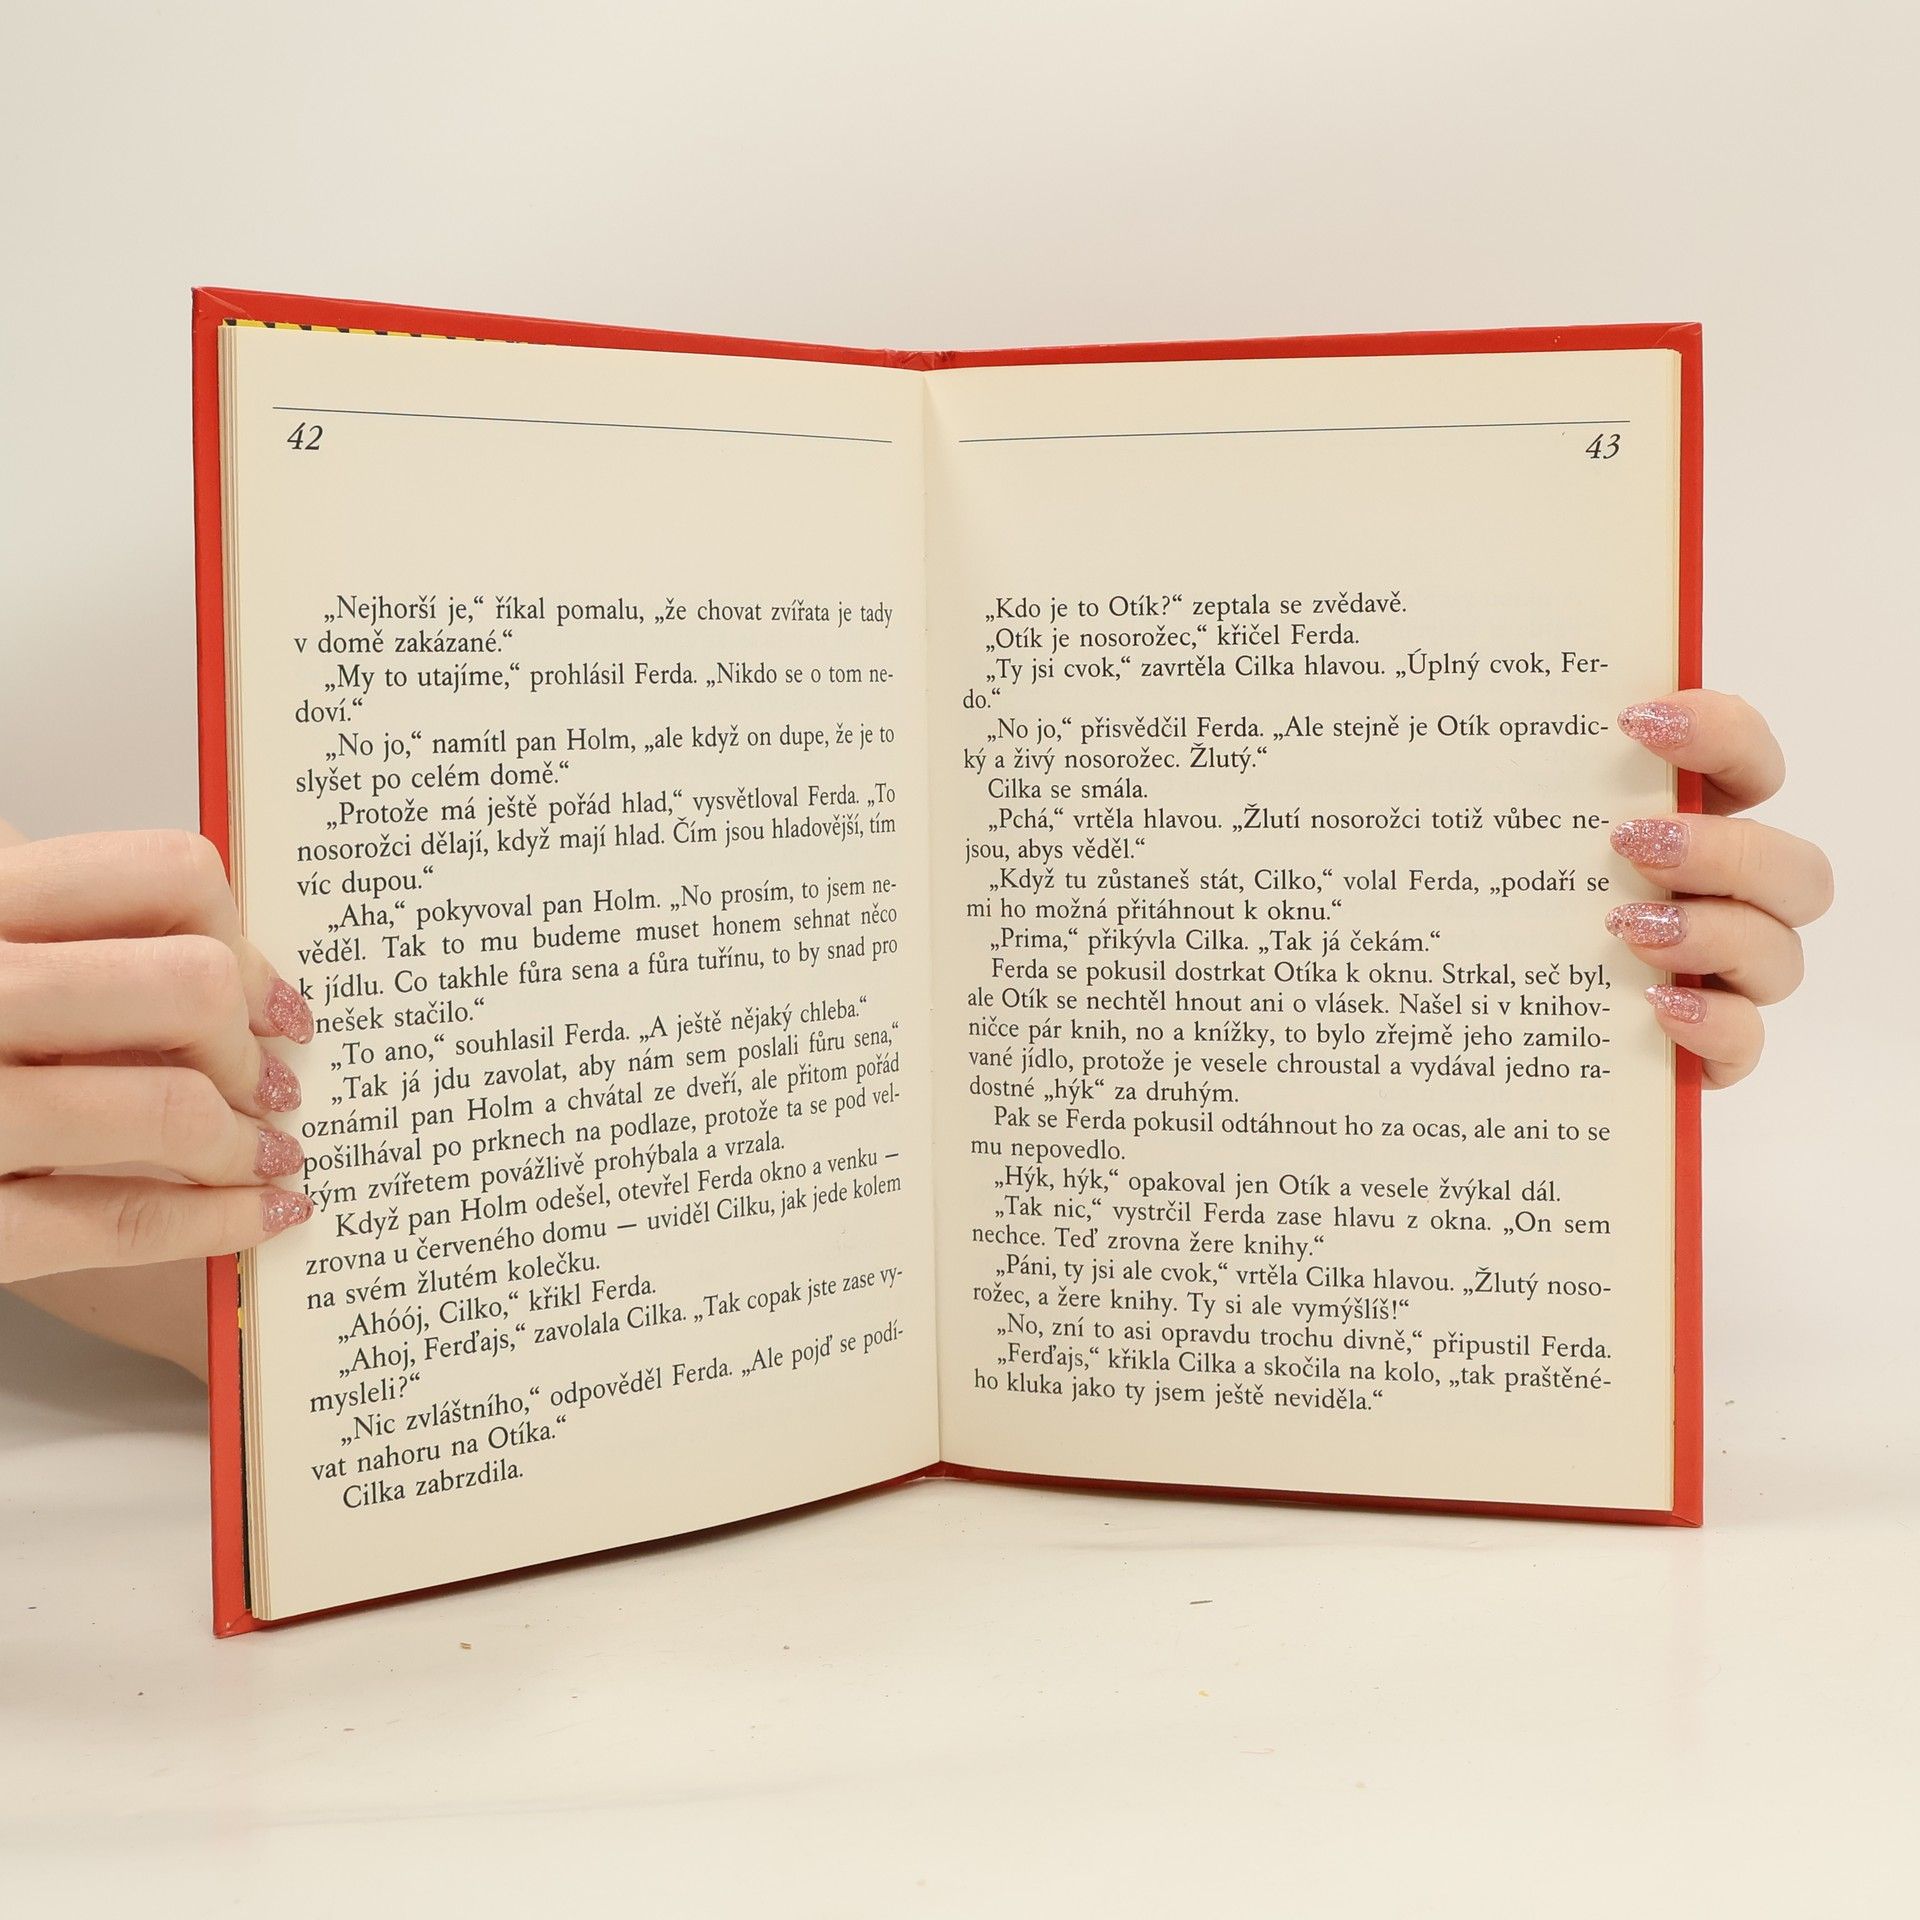 42
„Nejhorší je,“ říkal pomalu, „že chovat zvířata je tady
v domě zakázané.“
„My to utajíme,“ prohlásil Ferda. „Nikdo se o tom ne-
doví.“
„No jo,“ namítl pan Holm, „ale když on dupe, že je to
slyšet po celém domě.“
„Protože má ještě pořád hlad,“ vysvětloval Ferda. „To
nosorožci dělají, když mají hlad. Čím jsou hladovější, tím
víc dupou.“
„Aha,“ pokyvoval pan Holm. „No prosím, to jsem ne-
věděl. Tak to mu budeme muset honem sehnat něco
k jídlu. Co takhle fůra sena a fůra tuřínu, to by snad pro
nešek stačilo.“
„To ano,“ souhlasil Ferda. „A ještě nějaký chleba.“
„Tak já jdu zavolat, aby nám sem poslali fůru sena,“
oznámil pan Holm a chvátal ze dveří, ale přitom pořád
pošilhával po prknech na podlaze, protože ta se pod vel-
kým zvířetem povážlivě prohýbala a vrzala.
Když pan Holm odešel, otevřel Ferda okno a venku –
zrovna u červeného domu – uviděl Cilku, jak jede kolem
na svém žlutém kolečku.
„Ahóój, Cilko,“ křikl Ferda.
„Ahoj, Ferďajs,“ zavolala Cilka. „Tak copak jste zase vy-
mysleli?“
„Nic zvláštního,“ odpověděl Ferda. „Ale pojď se podí-
vat nahoru na Otíka.“
Cilka zabrzdila.
43
„Kdo je to Otík?“ zeptala se zvědavě.
„Otík je nosorožec,“ křičel Ferda.
„Ty jsi cvok,“ zavrtěla Cilka hlavou. „Úplný cvok, Fer-
do.“
„No jo,“ přisvědčil Ferda. „Ale stejně je Otík opravdic-
ký a živý nosorožec. Žlutý.“
Cilka se smála.
„Pchá,“ vrtěla hlavou. „Žlutí nosorožci totiž vůbec ne-
jsou, abys věděl.“
„Když tu zůstaneš stát, Cilko,“ volal Ferda, „podaří se
mi ho možná přitáhnout k oknu.“
„Prima,“ přikývla Cilka. „Tak já čekám.“
Ferda se pokusil dostrkat Otíka k oknu. Strkal, seč byl,
ale Otík se nechtěl hnout ani o vlásek. Našel si v knihov-
ničce pár knih, no a knížky, to bylo zřejmě jeho zamilo-
vané jídlo, protože je vesele chroustal a vydával jedno ra-
dostné „hýk“ za druhým.
Pak se Ferda pokusil odtáhnout ho za ocas, ale ani to se
mu nepovedlo.
„Hýk, hýk,“ opakoval jen Otík a vesele žvýkal dál.
„Tak nic,“ vystrčil Ferda zase hlavu z okna. „On sem
nechce. Teď zrovna žere knihy.“
„Páni, ty jsi ale cvok,“ vrtěla Cilka hlavou. „Žlutý noso-
rožec, a žere knihy. Ty si ale vymýšlíš!“
„No, zní to asi opravdu trochu divně,“ připustil Ferda.
„Ferďajs,“ křikla Cilka a skočila na kolo, „tak praštěné-
ho kluka jako ty jsem ještě neviděla.“